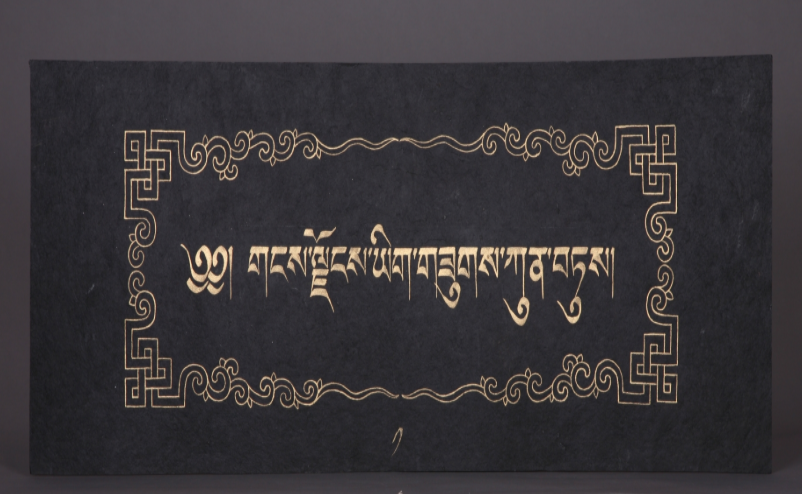 ༄༅། གངས་ལྗོངས་ཡིག་གཟུགས་ཀུན་བཏུས།
༡